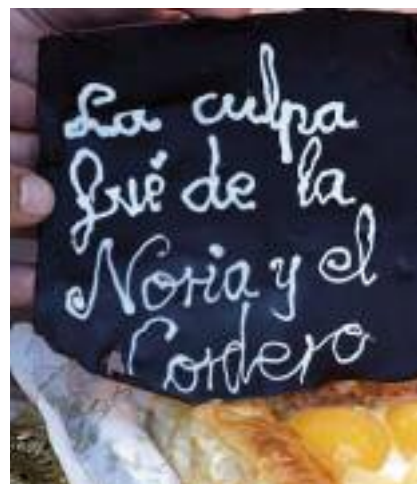 La culpa
fué de la
Noria y el
Cordero